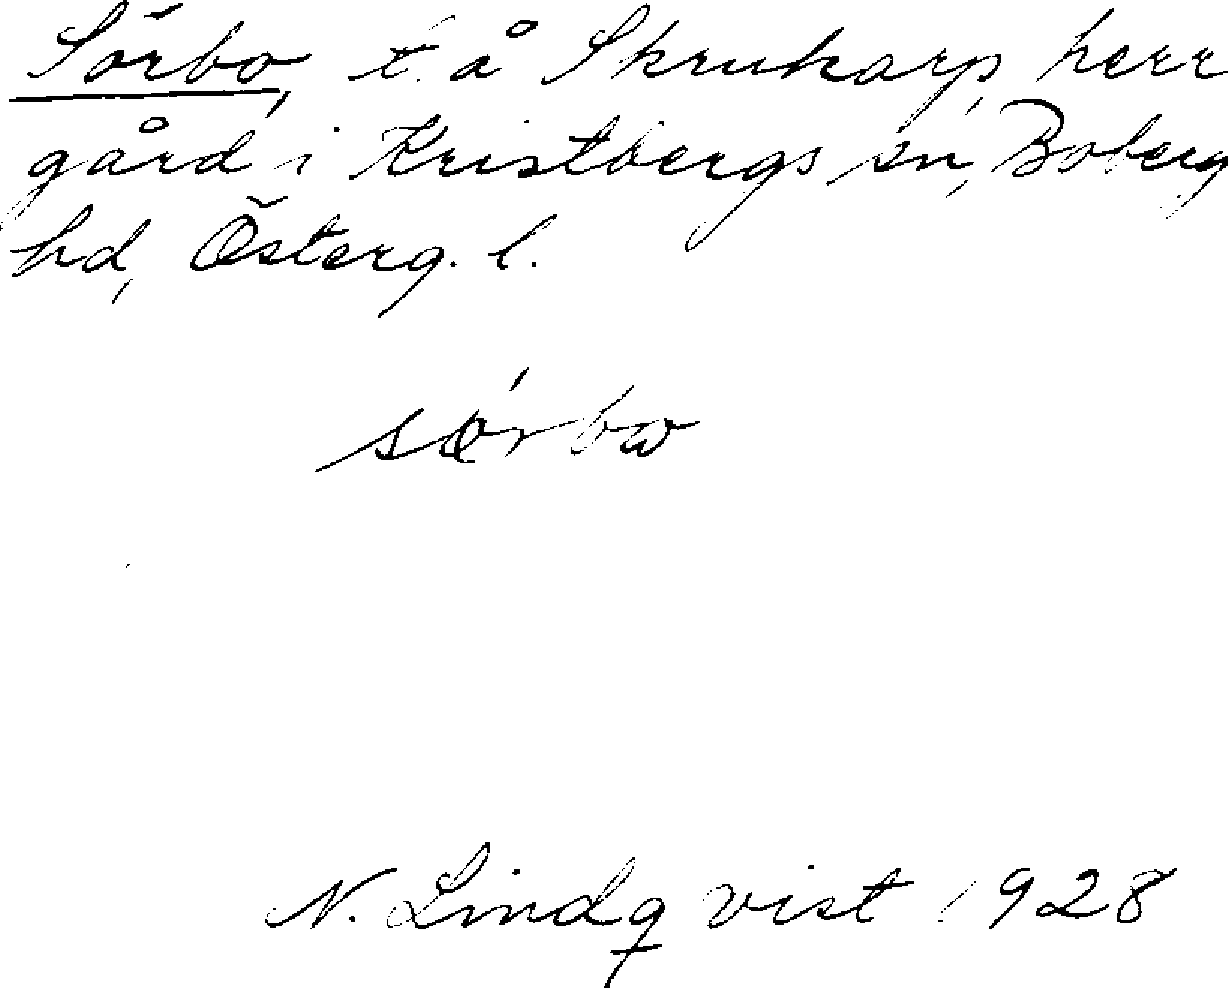 Sörbo, t. å Skrukarp, herr
gård i Kristbergs sn, Boberg
hd, Österg. l.
sǿrbω
N. Lindqvist 1928